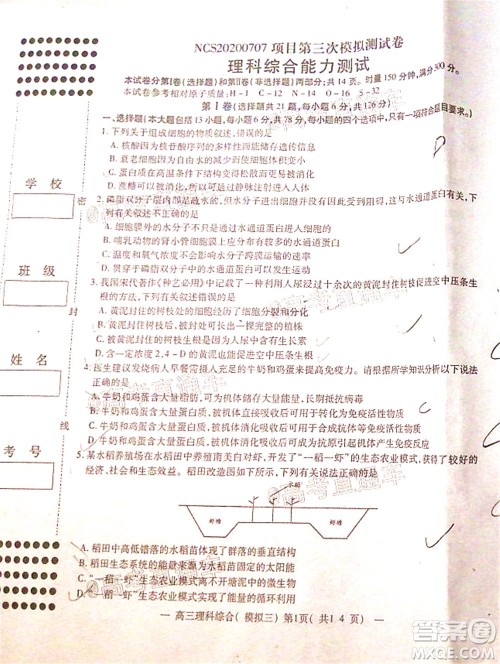 NCS20200707 项目第三次模拟测试卷
理科综合能力测试
本试卷分第Ⅰ卷(选择题)和第Ⅱ卷(非选择题)两部分;共14页。时量150分钟,满分300分。
本试卷参考相对原子质量:H-1 C-12 N-14 O-16
第Ⅰ卷(选择题共21题,每小题6分,共126分)
一、选择题(本大题包括13小题,每小题6分,共78分,每小题的四个选项中,只有一个符合题目要求。)
1. 下列关于组成细胞的物质叙述,错误的是
A. 核酸因为核苷酸序列的多样性而能储存遗传信息
B. 衰老细胞因为自由水的减少而体积变小
C. 蛋白质在高温条件下因肽键断裂而变性
D. 蔗糖和麦芽糖因为不能被吸收,不可通过静脉注射进入人体
2. 磷脂双分子层内部是疏水的,水分子能够较快地通过细胞膜与膜上的水通道蛋白有关,下
列有关叙述不正确的是
A. 细胞膜外的水分子也可以通过水通道蛋白进入细胞
B. 哺乳动物的肾小管细胞膜上具有较多的水通道蛋白
C. 温度和氧气浓度会影响水分子的跨膜运输
D. 贯穿于磷脂双分子中的水通道蛋白具有特异性
3. 我国宋代著作《种艺必用》中记载了一种利用人尿浸过十余次的黄泥封住树枝促进空中压条生
根的方法。有关说法正确的是
A. 黄泥封住树枝处的细胞经过了细胞分裂和分化
B. 黄泥封住树枝后,细胞的遗传物质发生了改变
C. 人尿中的生长素从树枝的形态学上端运输到下端
D. 4℃的黄泥封住树枝生根率高,更有利于促进空中压条生根
4. 医生建议发烧病人早餐需摄入蛋奶来提高免疫力。请根据所学知识分析以下说法
正确的是
A. 牛奶和鸡蛋含大量脂肪,可为机体储存大量能量,以抵抗病毒
B. 牛奶和鸡蛋含大量蛋白质,被机体直接吸收后可用于合成有免疫活性的物质
C. 牛奶和鸡蛋含大量蛋白质,被机体间接吸收后可用于合成有免疫活性的物质
D. 牛奶和鸡蛋含大量无机盐,被机体吸收后可用于合成抗原等免疫活性物质
5. 某水稻养殖场在水稻田中养殖南美白对虾,开发了“一稻一虾”的生态农业模式,获得了较好的
经济、社会和生态效益。稻田改造如图2所示。下列有关说法正确的是
水稻
虾塘
虾塘
A. 稻田中高低错落的水稻苗体现了群落的垂直结构
B. 稻田生态系统的能量来源于水稻苗固定的太阳能
C. “一稻一虾”生态农业模式离不开稻田中的微生物
D. “一稻一虾”生态农业模式实现了能量的循环利用
— 高三理科综合(模拟三)第1页(共14页) —
学校
班级
姓名
考号
密
封
线
@高考直通车
@高考直通车